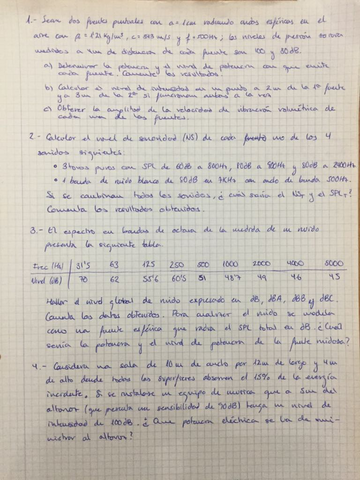 1.- Sean dos fuentes puntuales con a = 1cm radiando ondas esféricas en el
aire con ρ = 1'21 kg/m³, c = 343 m/s y f = 700Hz; los niveles de presión sonora
medidos a 2m de distancia de cada fuente son 100 y 80dB.
a) Determinar la potencia y el nivel de potencia con que emite
cada fuente. Comenta los resultados.
b) Calcular el nivel de intensidad en un punto a 2m de la 1ª fuente
y a 3m de la 2ª si funcionan ambas a la vez.
c) Obtener la amplitud de la velocidad de vibración volumétrica de
cada una de las fuentes.
2.- Calcular el nivel de sonoridad (NS) de cada uno de los 4
sonidos siguientes:
• 3 tonos puros con SPL de 60dB a 200Hz, 70dB a 500Hz y 80dB a 2400Hz
• 1 banda de ruido blanco de 90dB en 1KHz con ancho de banda 500Hz.
Si se combinan todos los sonidos, ¿cuál sería el NS_T y el SPL_T?
Comenta los resultados obtenidos.
3.- El espectro en bandas de octava de la medida de un ruido
presenta la siguiente tabla.
Frec (Hz) | 31'5 | 63 | 125 | 250 | 500 | 1000 | 2000 | 4000 | 8000
Nivel (dB) | 70 | 62 | 55'6 | 60'5 | 51 | 48'7 | 49 | 46 | 43
Hallar el nivel global de ruido expresado en dB, dBA, dBB y dBC.
Comenta los datos obtenidos. Para analizar el ruido se modela
como una fuente esférica que radia el SPL total en dB. ¿Cuál
sería la potencia y el nivel de potencia de la fuente ruidosa?
4.- Considera una sala de 10m de ancho por 12m de largo y 4m
de alto donde todas las superficies absorben el 15% de la energía
incidente. Si se instalase un equipo de música que a 3m del
altavoz (que presenta una sensibilidad de 90dB) tenga un nivel de
intensidad de 100dB. ¿Qué potencia eléctrica se ha de sumi-
nistrar al altavoz?